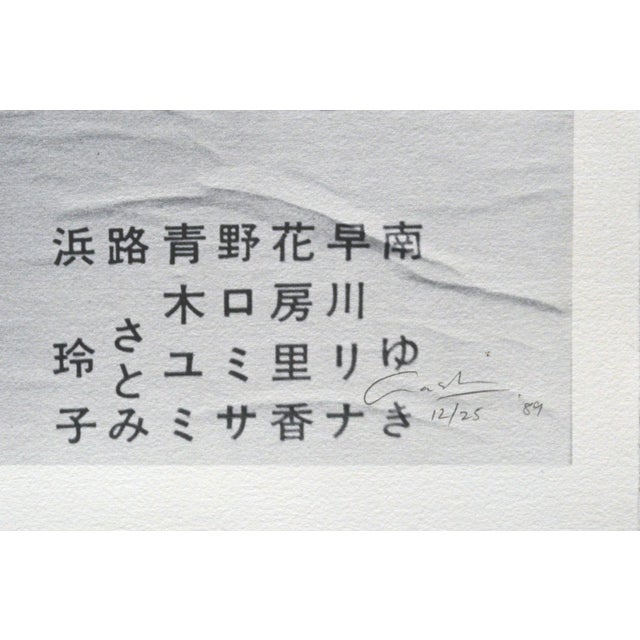 南ゆき
早川リナ
花房里香
野口ミサ
青木ユミ
路さとみ
浜玲子
12/25 '89